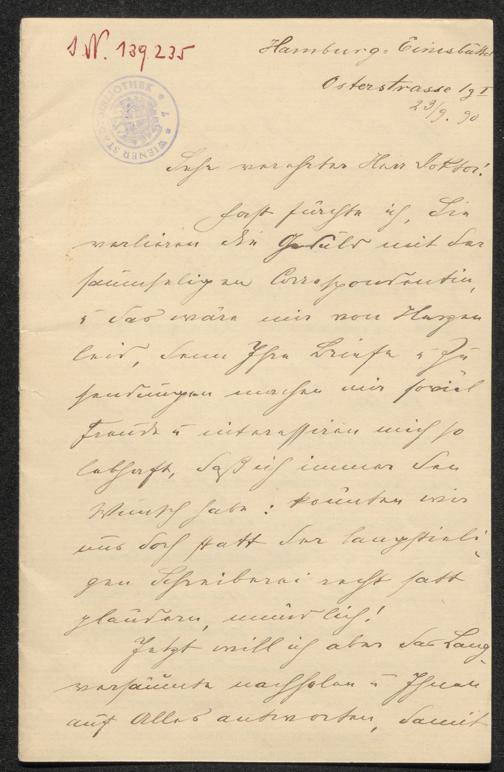 J.N. 139.235
WIENER STADTBIBLIOTHEK
Hamburg-Eimsbüttel
Osterstrasse 19 I
29/9. 90
Sehr verehrter Herr Doktor!
Fast fürchte ich, Sie
verlieren die Geduld mit der
saumseligen Correspondentin,
u das wäre mir von Herzen
leid, denn Ihre Briefe u Zu
sendungen machen mir soviel
Freude u interessiren mich so
lebhaft, daß ich immer den
Wunsch habe: könnten wir
uns doch statt der langstieli-
gen Schreiberei recht satt
plaudern, mündlich!
Jetzt will ich aber das Lang
versäumte nachholen u Ihnen
auf Alles antworten, damit